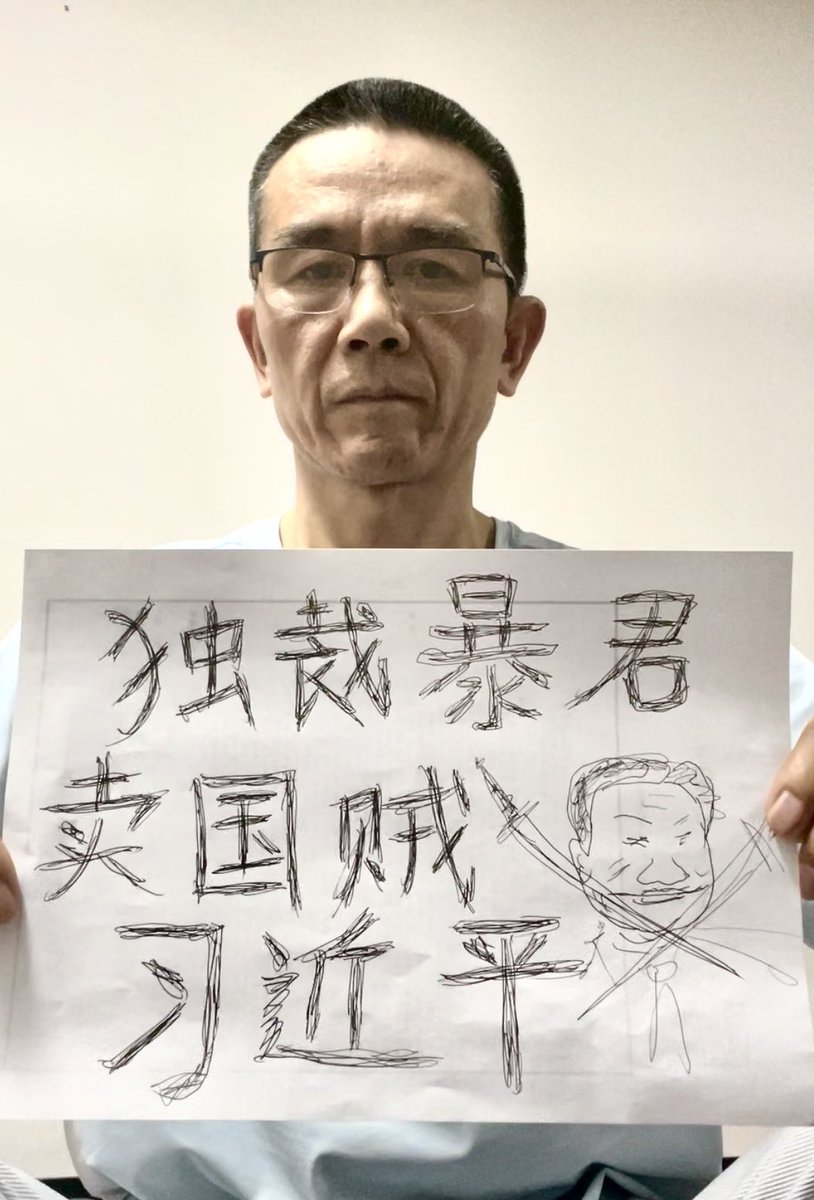 独裁暴君
卖国贼
习近平